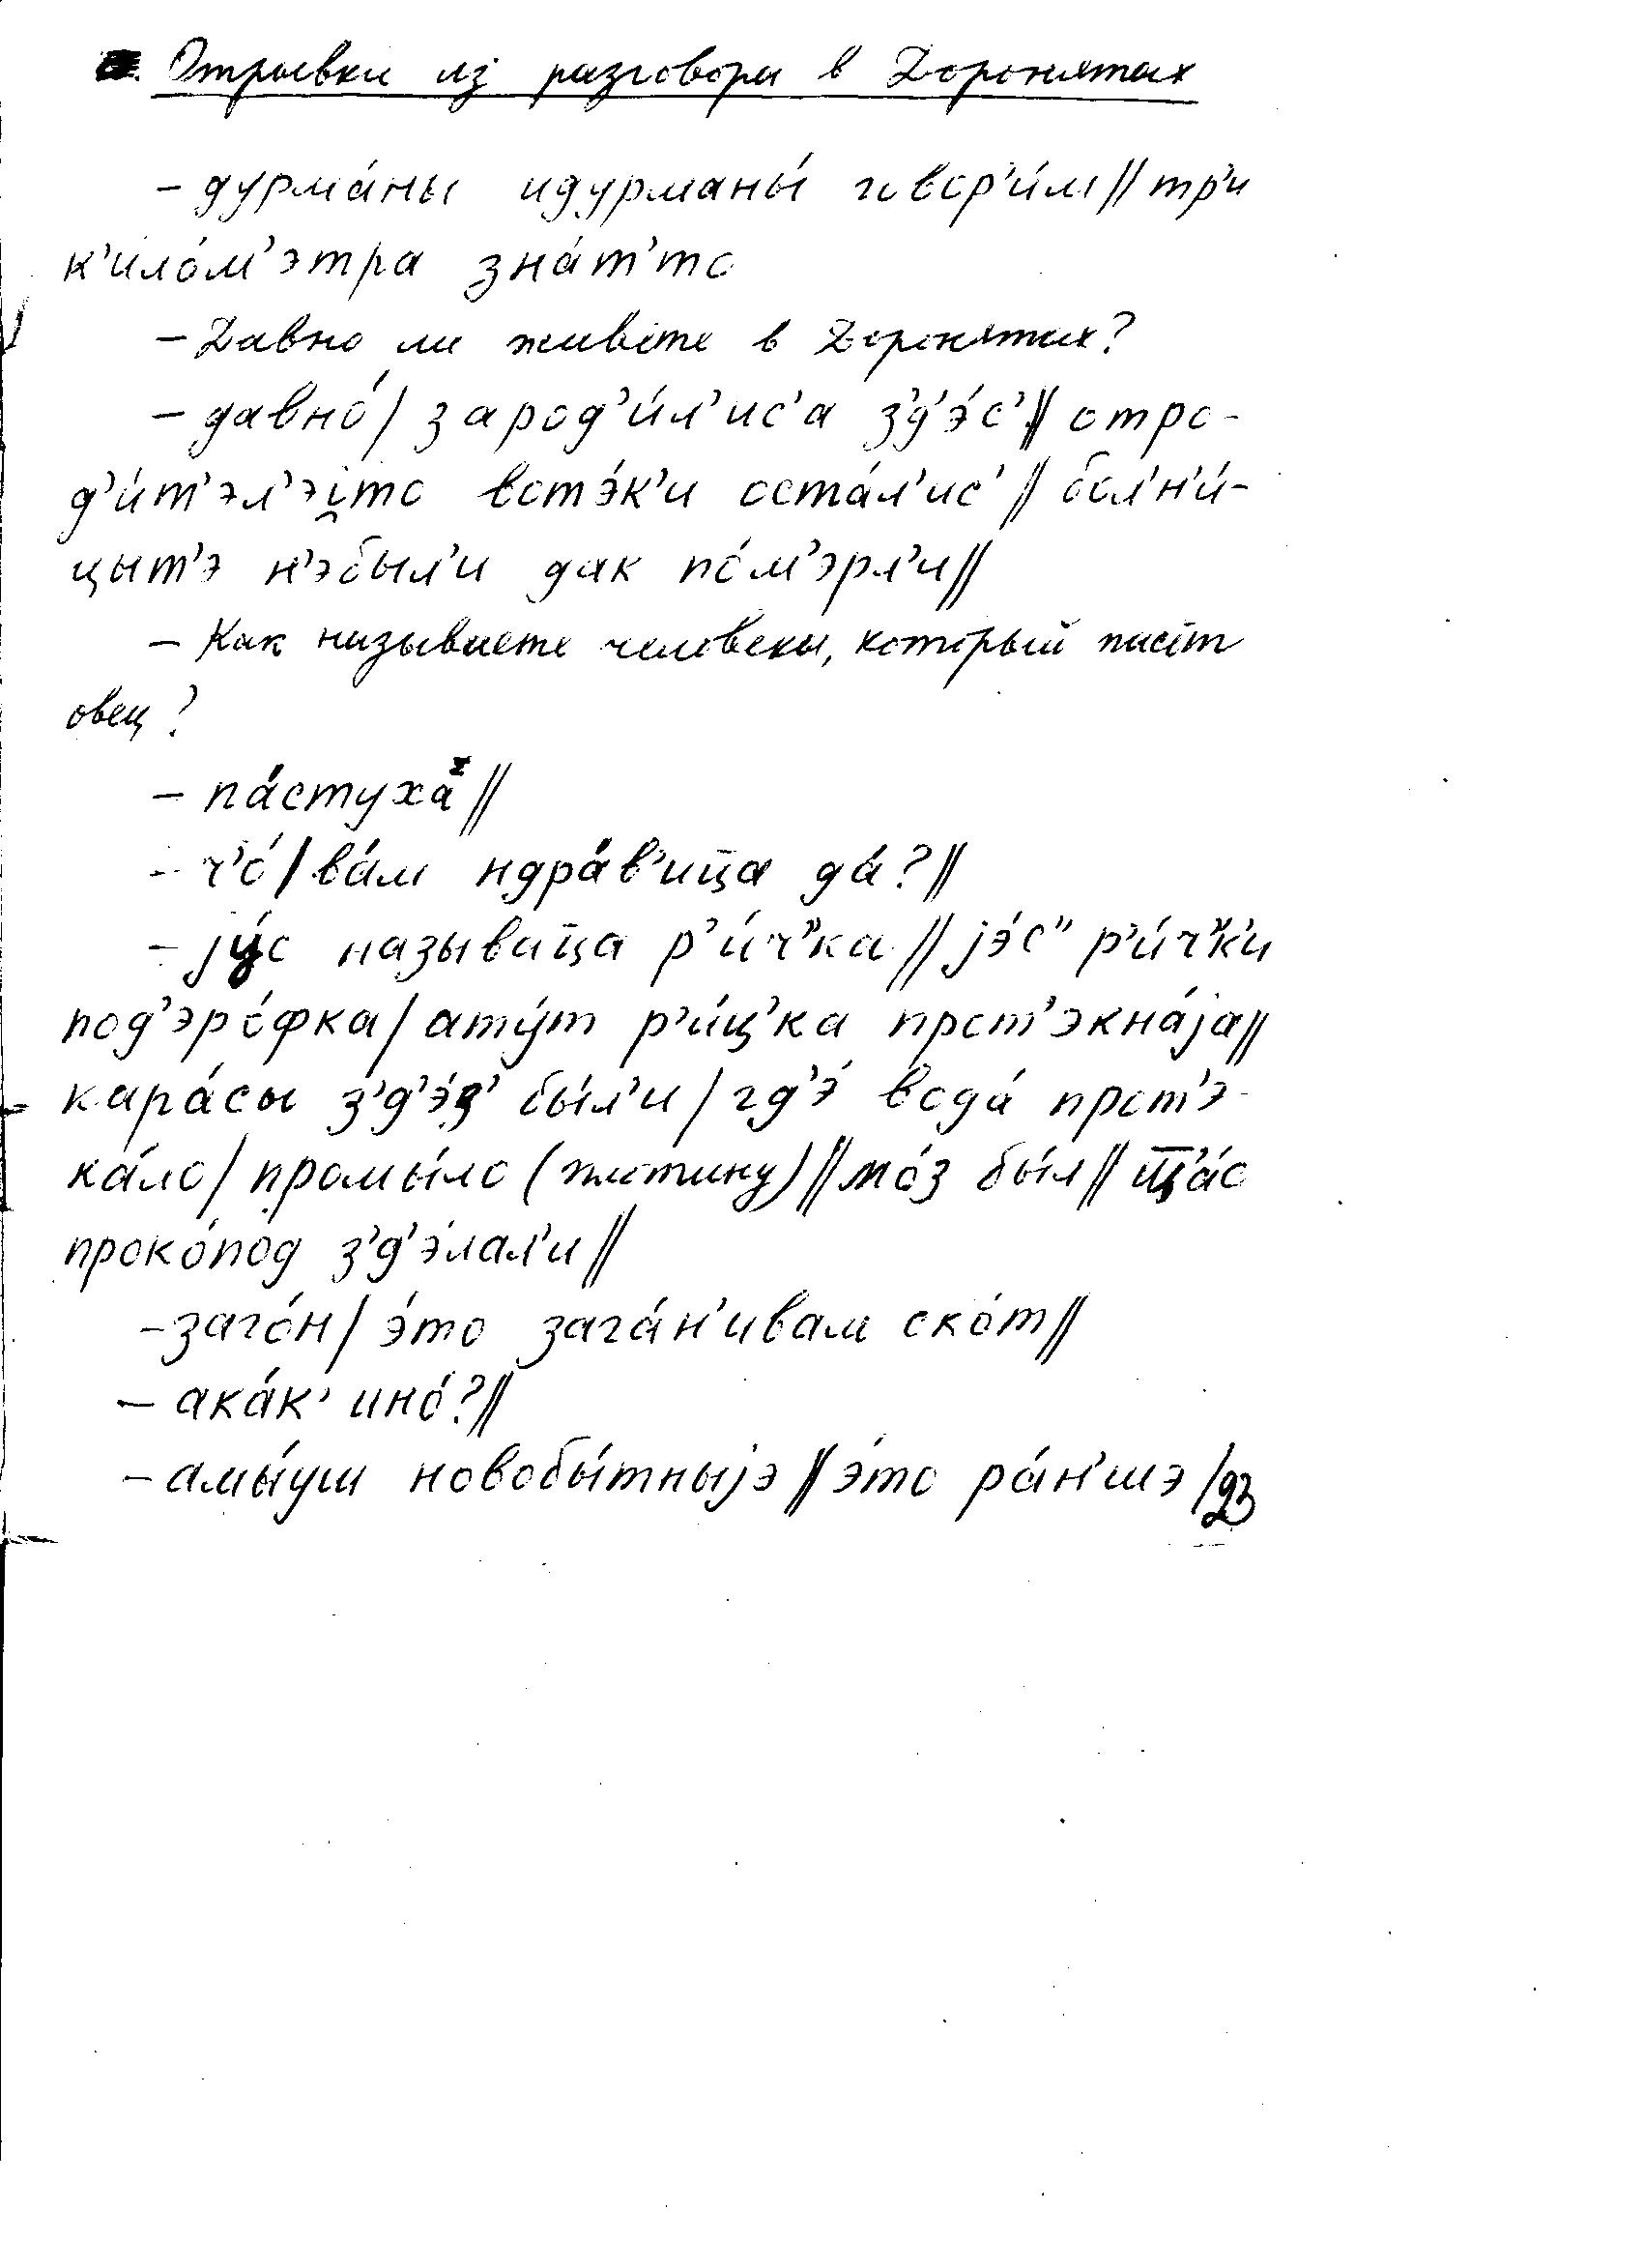 Отрывки из разговора в Доронятах
– дурма́ны идурманы́ говор'и́м // тр'и
к'ило́м'этра зна́т'то
– Давно ли живёте в Доронятах?
– давно́ / зарод'и́л'ис'а з'д'э́с' // отро-
д'и́т'эл'эi̯то вотэ́к'и оста́л'ис' // бол'н'и́-
цыт'э н'эбыл'и дак по́м'эрл'и //
– Как называете человека, который пасёт
овец?
– па́стуха //
– ч'о́ / ва́м ндра́в'ица да́? //
– jу́с называица р'и́ч"ка // jэ́с" р'и́ч"к'и
под'эро́фка / ату́т р'и́ц'ка прот'экна́jа //
кара́сы з'д'э́з' бы́л'и / гд'э́ вода́ прот'э-
ка́ло / промы́ло (плотину) // мо́з бы́л // щ'а́с
проко́под з'д'э́лал'и //
– заго́н / э́то зага́н'ивам ско́т //
– ака́к' ино́? //
– амы́уш новобы́тныjэ // э́то ра́н'шэ /
23